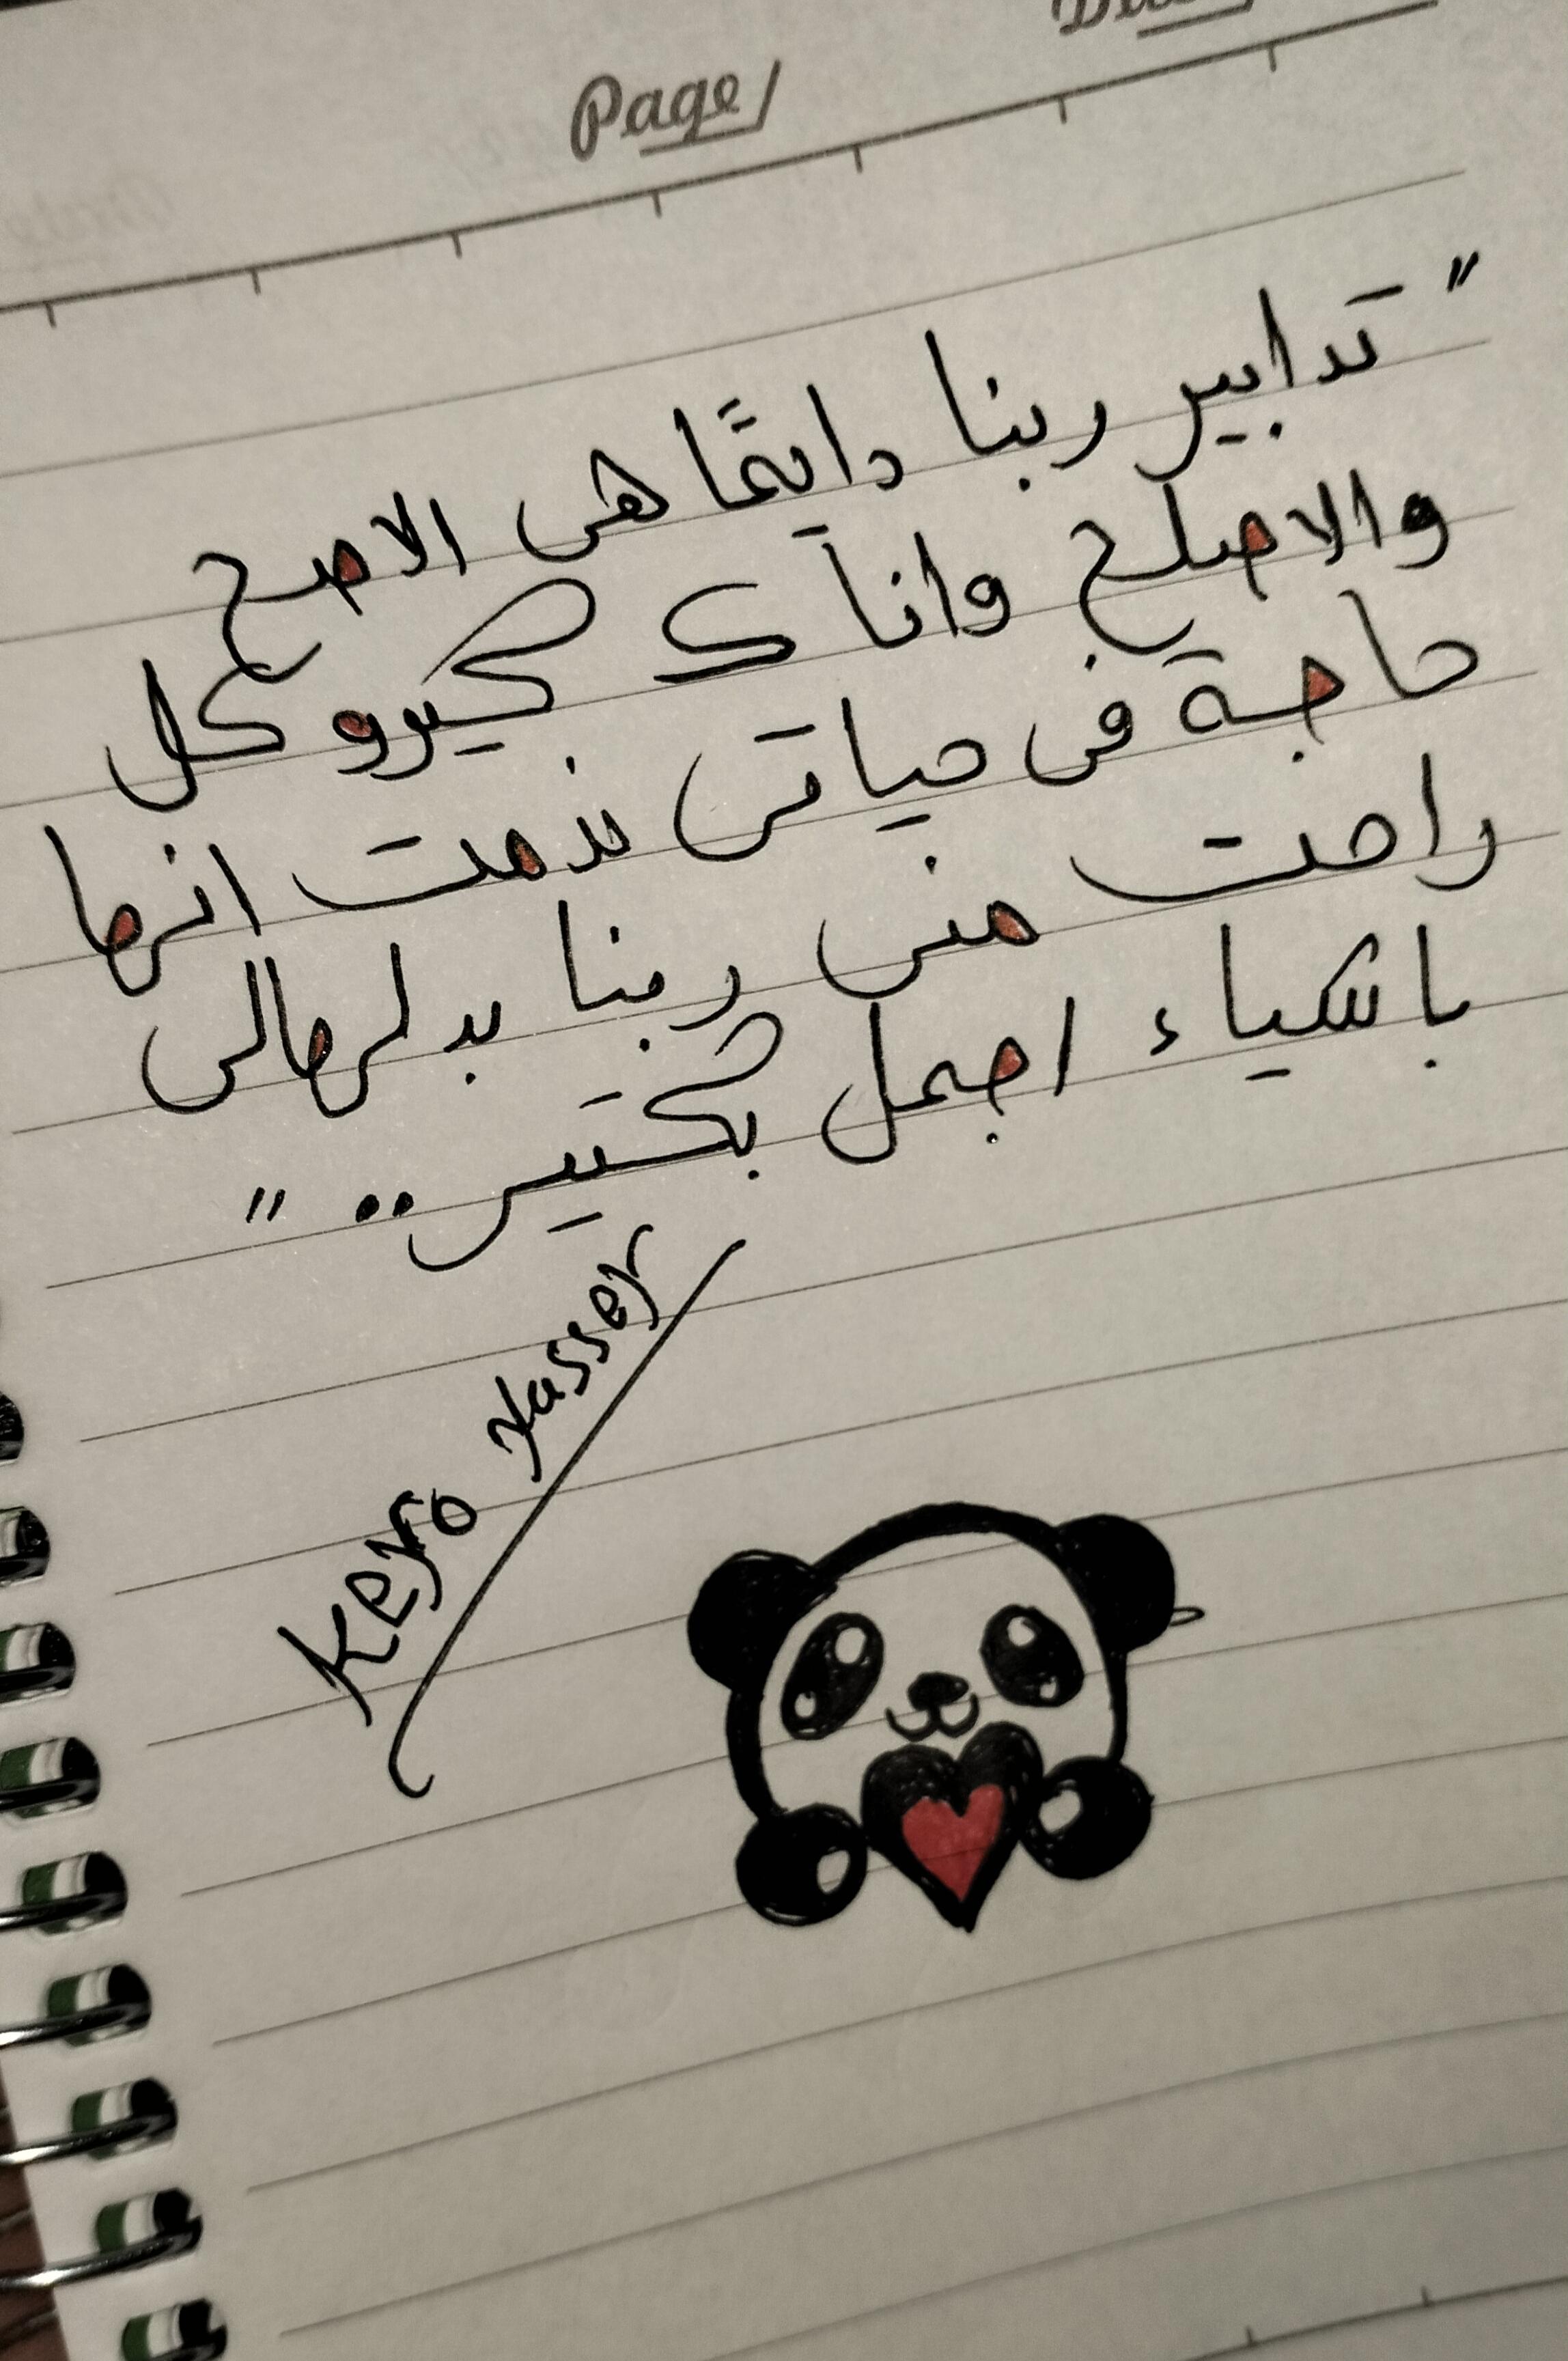 Page
" تدابير ربنا دايمًا هى الاصح
والاصلح وانا ك كيرو كل
حاجة فى حياتى ندمت انها
راحت منى ربنا بدلهالى
باشياء اجمل بكتير .. "
Kero Nasser